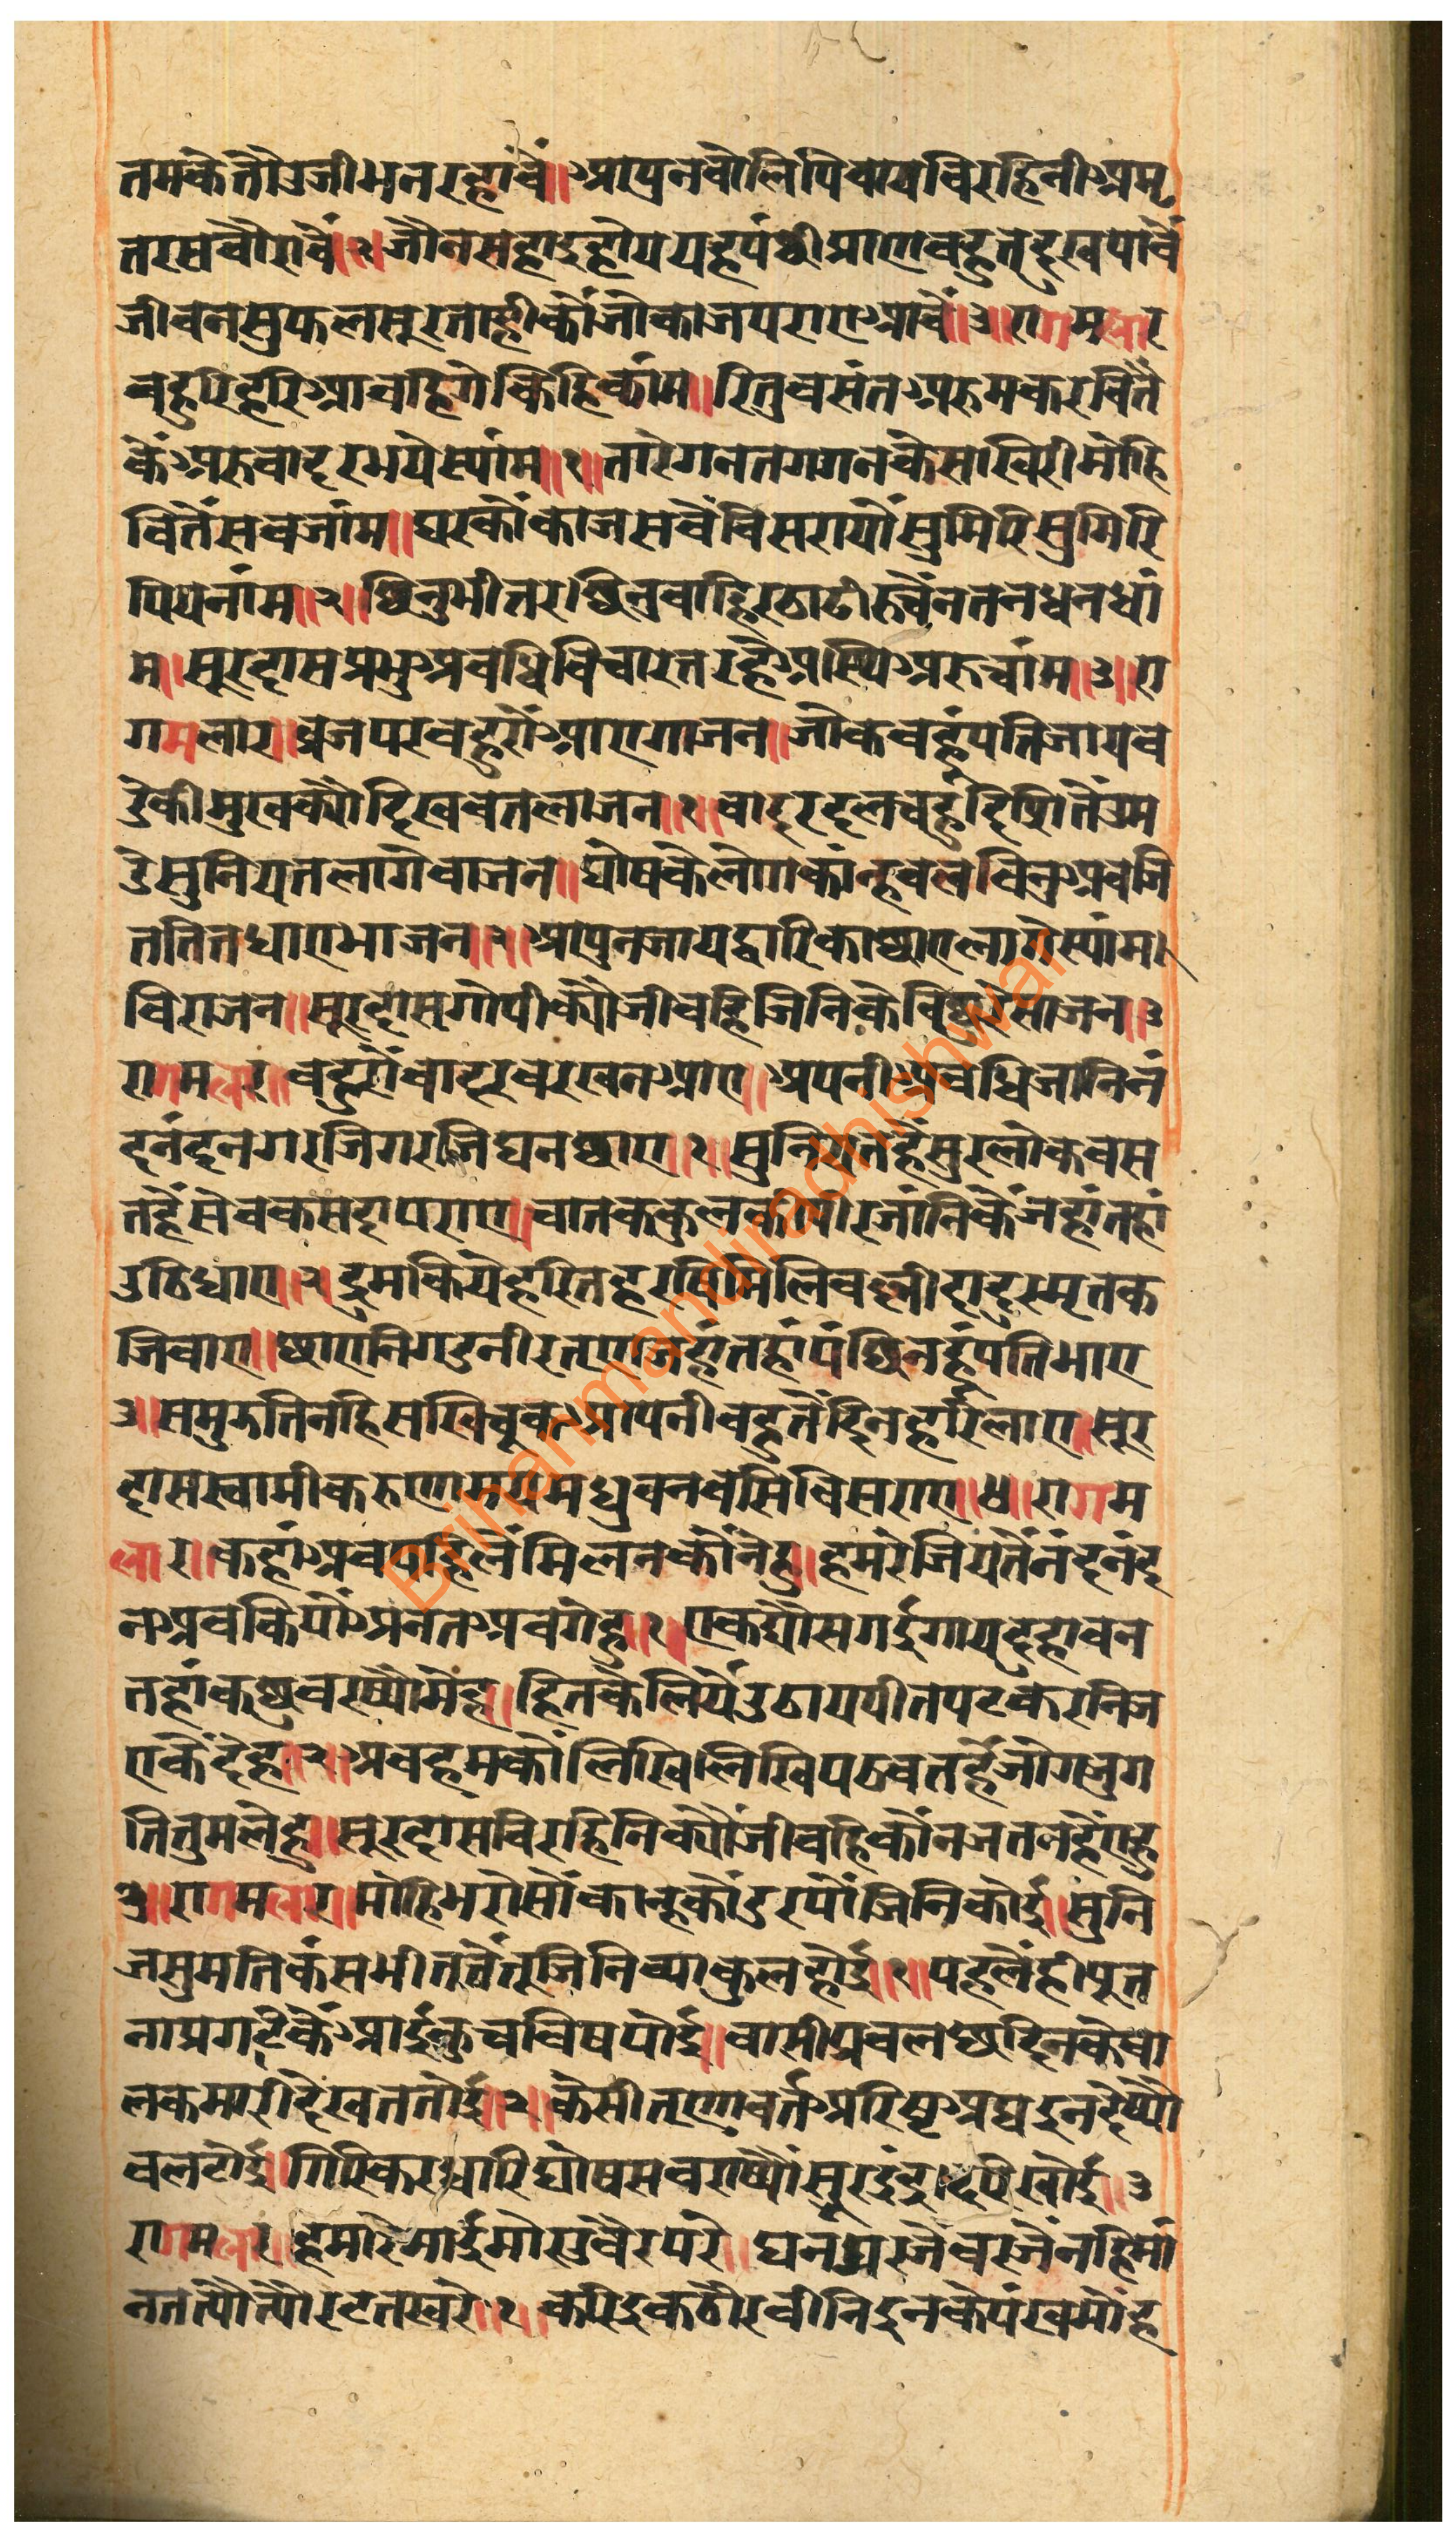 तमकेतौउजीभनरह्यांवैं॥आपुनवोलिपिवायविरहिनीअमृ
तरसवौरावैं॥२॥जौनसहाइहोययहपंछीप्राणवहुत्दुखपावै
जीवनसुफलसूरताहीकौंजोकाजपराएआवैं॥३॥रागमलार
वहुरिहरिआवहिगेकिहिकांम॥रितुवसंतअरुमकरवितैं
कैंअरुवादरभयेस्यांम॥१॥तारेगनतगगनकेसाखिरीमोहि
वितैंसवजांम॥घरकौंकाजसवैविसरायौंसुमिरिसुमिरि
पियनांम॥२॥छिनुभीतरछिनुवाहिरठाढीरुचैंनतनधनधां
म॥सूरदासप्रभुअवधिविचारतरहेअस्थिअरुचांम॥३॥रा
गमलार॥व्रजपरवहुरौंआएगाजन॥जौकवहुंपतिजायव
डेकीमुखक्यौदिखवेतलाजन॥१॥वादरदलवहुंदिसितेंउम
डेसुनियतलागेवाजन॥घोषकेलोगकांन्हवलविनुअवजि
ततितधाएभाजन॥२॥आपुनजायद्वारिकाछाएलागेस्यांम॥
विराजन॥सूरदासगोपीक्यौंजीवहिजिनिकेविछुरेसाजन॥३
रागमलार॥वहुरौंवादरवरखनआए॥अपनीअवधिजानिनं
दनंदनगरजिगरजिघनछाए॥१॥सुनियतहैंसुरलोकवस
तहैंसेवकसदापराए॥चातककुलकीपीरजांनिकैंजहांतहां
उठिधाए॥२॥द्रुमकियेहरितहरषिमिलिवल्लीदादुरमृतक
जिवाए॥छाएनिगडनीरतृणजहंतहांपंछिनहुंपतिभाए
३॥समुझतिनहिसखिचूकआपनीवहुतैंदिनहरिलाए॥सूर
दासस्वामीकरुणामयमधुवनवसिविसराए॥४॥रागम
लार॥कहांअवपहिलैंमिलनकौंनेहु॥हमरेजियतैंनंदनंद
नअवकियौंअनतअवगेहु॥१॥एकद्यौसगईगायदुहावन
तहांकृष्णवरष्यौमेहु॥हितकेलियैंउठायपीतपटकरनिज
एकैंदेहु॥२॥अवहमकौंलिखिलिखिपठवतहैंजोगजुग
तितुमलेहु॥सूरदासविरहिनिक्यौंजीवहिकौंनजतनहौंएहु
३॥रागमलार॥मोहिभरोसौंकान्हकौंडरपौंजिनिकोई॥सुनि
जसुमतिकंसभीतवैंतूजिनिव्याकुलहोई॥१॥पहलेंहीपूत
नाप्रगटकैंआईकुचविषपोई॥वासीप्रवलछदिनकेवा
लकमारीदेखततोई॥२॥केसीतृणावर्तअरिष्टअघइनदैष्यौ
वलटोई॥गिरिकरधारिघोषसवराष्यौंसूरइंद्रदर्पखोई॥३
रागमलार॥हमारेमाईमोरावैरपरे॥घनगरजैवरजैंनहिमां
नतत्यौत्यौरटतखरे॥१॥करिइकठौरवीनिइनकेपंखमोह